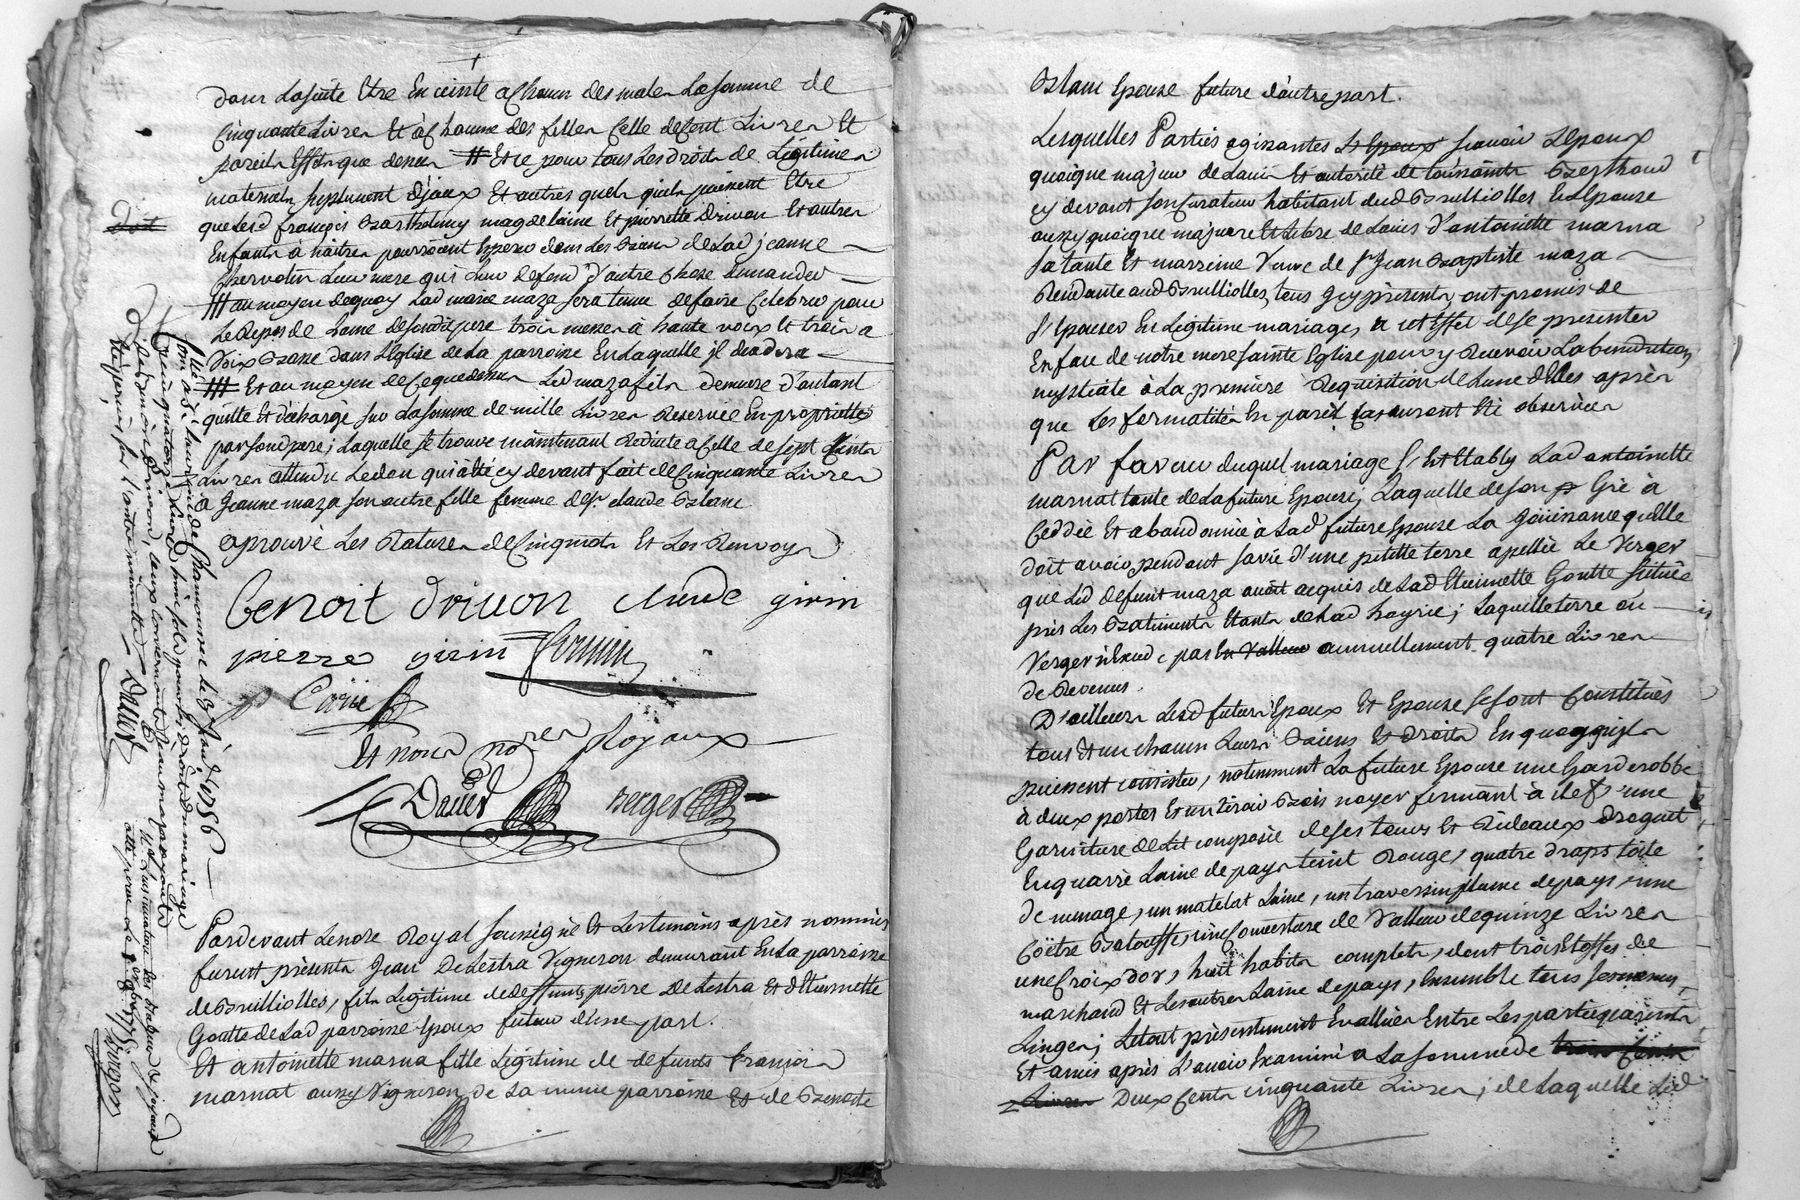 dans la suitte Etre Enceinte a Chacun des males La somme de
Cinquante Livres Et à Chacune des filles Celle de Cent Livres Et
pareils Effets que dessus # Et ce pour tous Les droits de Légitimes
maternels supplément d'jceux Et autres quels qu'ils puissent Etre
que lesd françois Barthelmy magdelaine Et pierrette Drivon Et autres
Enfants à naitre pourroient Esperer dans Les Biens de Lad jeanne
Chervolin Leur mere qui Leur deffend d'autre Chose demander
au moyen dequoy Lad marie maza sera tenue de faire Celebrer pour
Le Repos de Lame de sond pere trois messes à haute voix Et trois a
Voix Basse dans L'Eglise de La parroisse En Laquelle il décedera
Et au moyen de Ceque dessus Led maza fils demeure d'autant
quitte Et déchargé sur La somme de mille Livres Reservée En propriette
par sond pere; Laquelle se trouve maintenant Reduite a Celle de sept Cents
Livres attendu Le don qui a été cy devant fait de Cinquante Livres
à Jeanne maza son autre fille femme de sr. Claude Blanc
aprouvé Les Ratures de Cinq mots Et Les Renvoys
Benoit drivon Claude girin
pierre girin
Et nous nores Royaux
Dauer berger
Pardevant Le nore Royal soussigné Et Les temoins après nommés
furent présents Jean Delestra Vigneron demeurant En La parroisse
de Brulliolles, fils Légitime de deffunts pierre Delestra Et d'Etiennette
Goutte de Lad parroisse Epoux futur d'une part.
Et antoinette marna fille Légitime de defunts francois
marnat aussy Vigneron de La meme parroisse Et de Benoite
Blanc Epouse future d'autre part.
Lesquelles Parties agissantes scavoir L'Epoux
quoique majeur de Lavis Et autorité de toussaints Berthoud
cy devant son Curateur habitant dud Brulliolles Et L'Epouse
aussy quoique majeure Et Libre de Lavis d'antoinette marna
sa tante Et marreine Veuve de sr Jean Baptiste maza
Residante aud Brulliolles, tous jcy présents, ont promis de
s'Epouser En Légitime mariage, a cet Effet de se presenter
En face de notre mere sainte Eglise pour y Recevoir La benediction
nuptiale à La première Requisition de L'une d'Elles après
que Les formalités En pareil Cas auront Eté observées
Par faveur duquel mariage s'Est Etably Lad antoinette
marnat tante de La future Epouse; Laquelle de son Gré à
Ceddée Et abandonnée à Lad future Epouse La joüissance qu'elle
doit avoir pendant sa vie d'une petitte terre apellée Le Verger
que Led defunt maza avoit acquis de Lad Etiennette Goutte située
près Les Batiments Etants de Lad hoyrie; Laquelle terre ou
Verger annuellement quatre Livres
de Revenus.
D'ailleurs Lesd futurs Epoux Et Epouse se sont Constitués
tous Et un chacun Leurs Biens Et droits En quoy qu'ils
puissent consister, notamment La future Epouse une Garderobbe
à deux portes Et un tiroir Bois noyer fermant à clef, une
Garniture de Lit composée de ses tours Et Rideaux Droguet
En quarré Laine de pays teint Rouge, quatre draps toile
de menage, un matelat Laine, un traversin plume de pays, une
Coëtre Balouffe, une Couverture de Valleur de quinze Livres
une Croix d'or, huit habits complets, dont trois Etoffes de
marchand Et Les autres Laine de pays, Ensemble tous ses menus
Linges; Le tout présentement Evallués Entre Les parties parents
Et amis après L'avoir Examiné a La somme de
Deux Cents cinquante Livres; de Laquelle Led